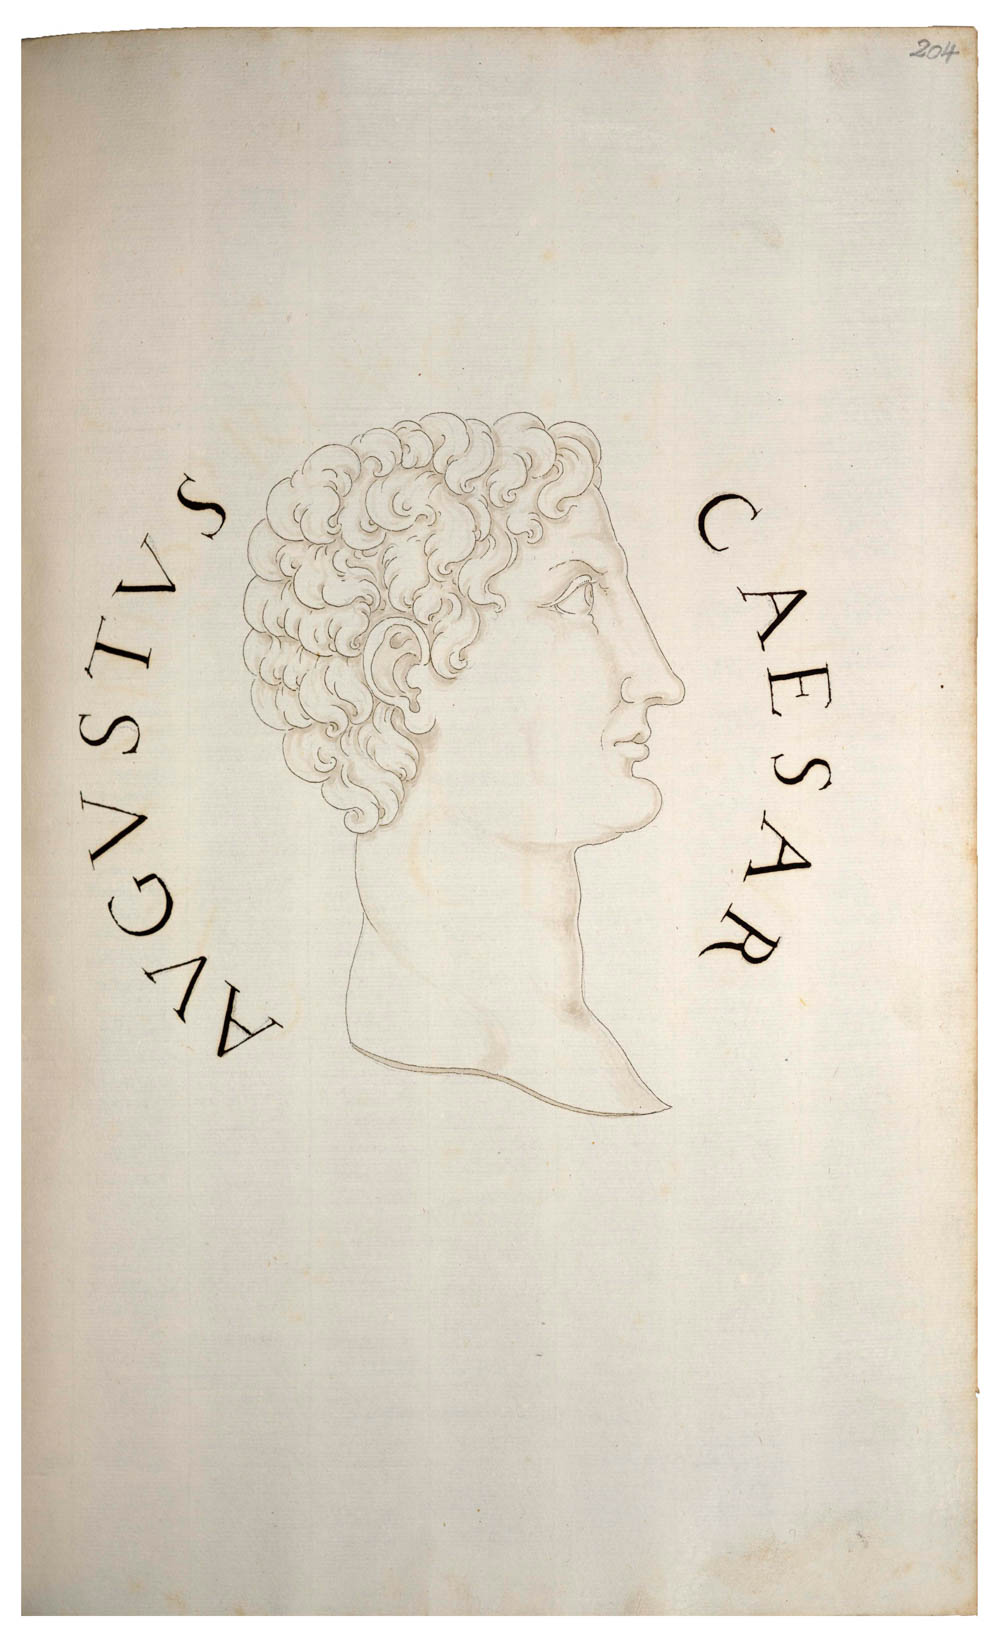 204
AVGVSTVS
CAESAR